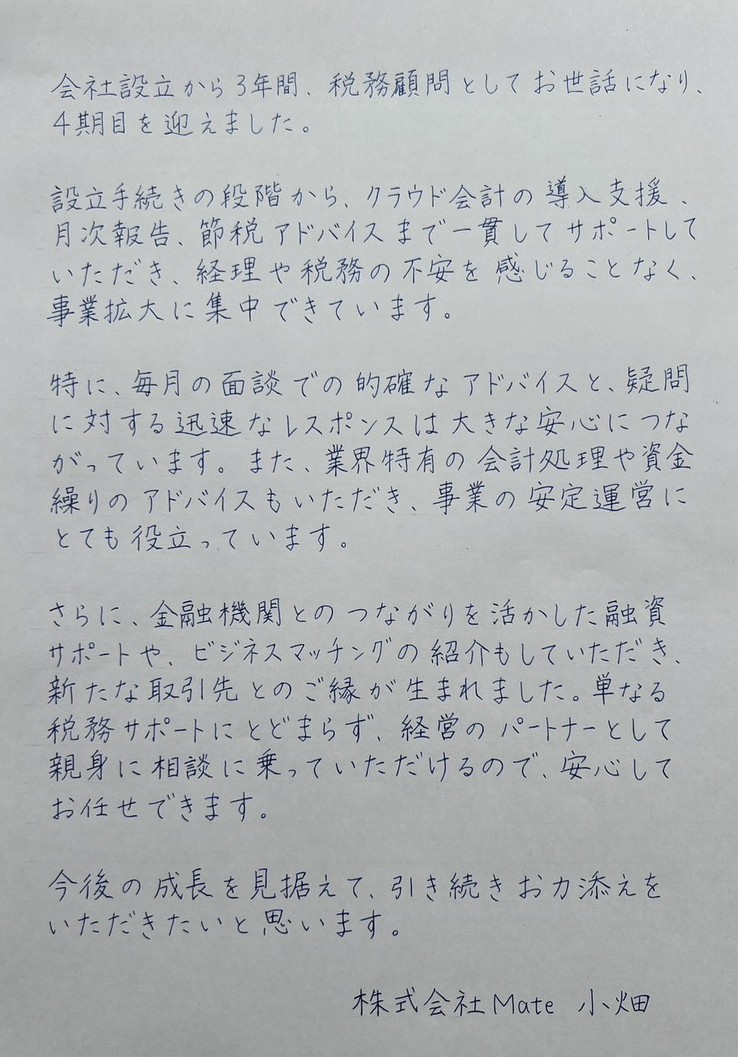 会社設立から3年間、税務顧問としてお世話になり、
4期目を迎えました。
設立手続きの段階から、クラウド会計の導入支援、
月次報告、節税アドバイスまで一貫してサポートして
いただき、経理や税務の不安を感じることなく、
事業拡大に集中できています。
特に、毎月の面談での的確なアドバイスと、疑問
に対する迅速なレスポンスは大きな安心につな
がっています。また、業界特有の会計処理や資金
繰りのアドバイスもいただき、事業の安定運営に
とても役立っています。
さらに、金融機関とのつながりを活かした融資
サポートや、ビジネスマッチングの紹介もしていただき、
新たな取引先とのご縁が生まれました。単なる
税務サポートにとどまらず、経営のパートナーとして
親身に相談に乗っていただけるので、安心して
お任せできます。
今後の成長を見据えて、引き続きお力添えを
いただきたいと思います。
株式会社Mate 小畑